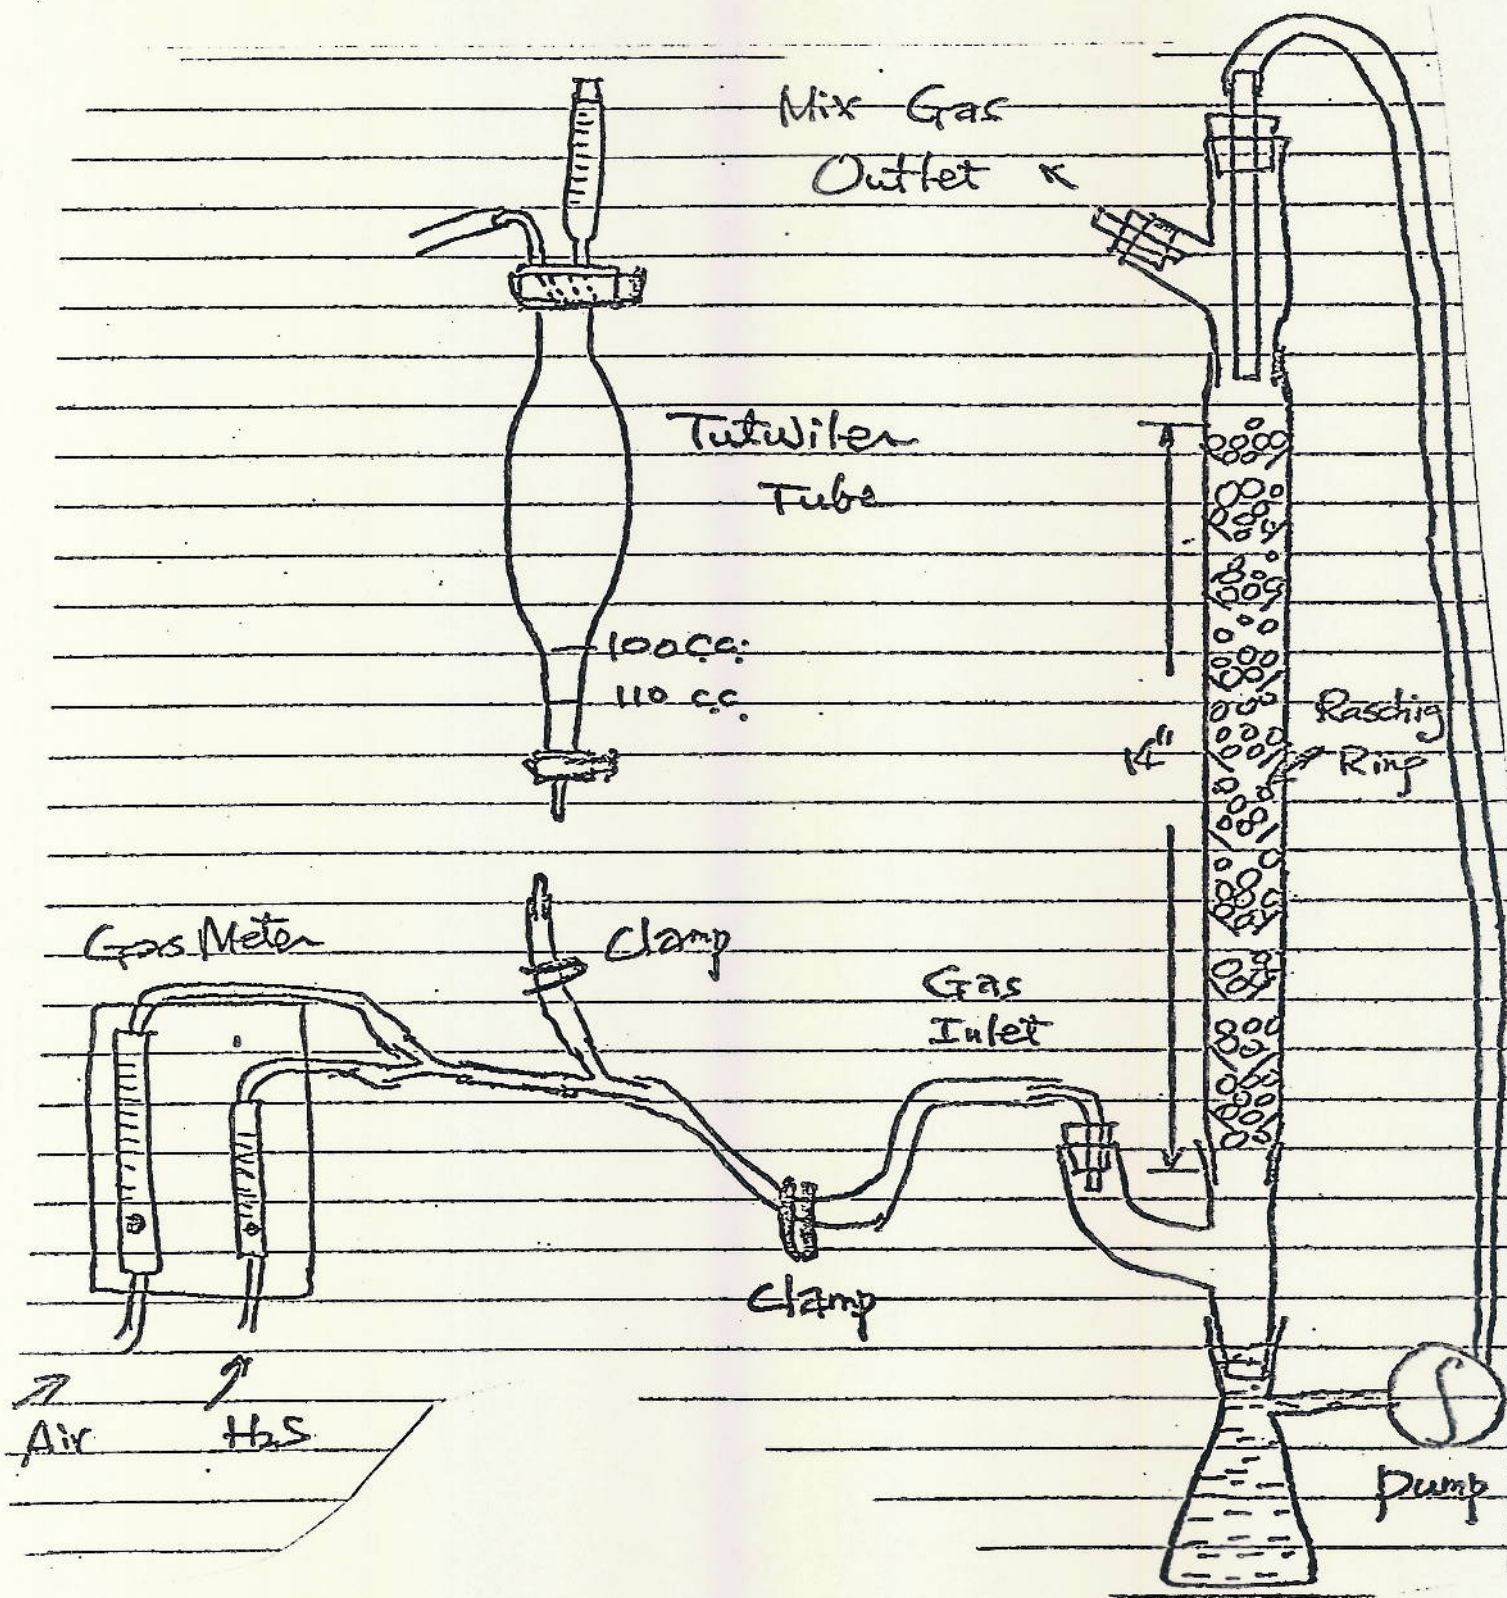 Mix Gas
Outlet
Tutwiler
Tube
100 c.c.
110 c.c.
Raschig
Ring
14"
Gas Meter
Clamp
Gas
Inlet
Clamp
Air
H2S
Pump